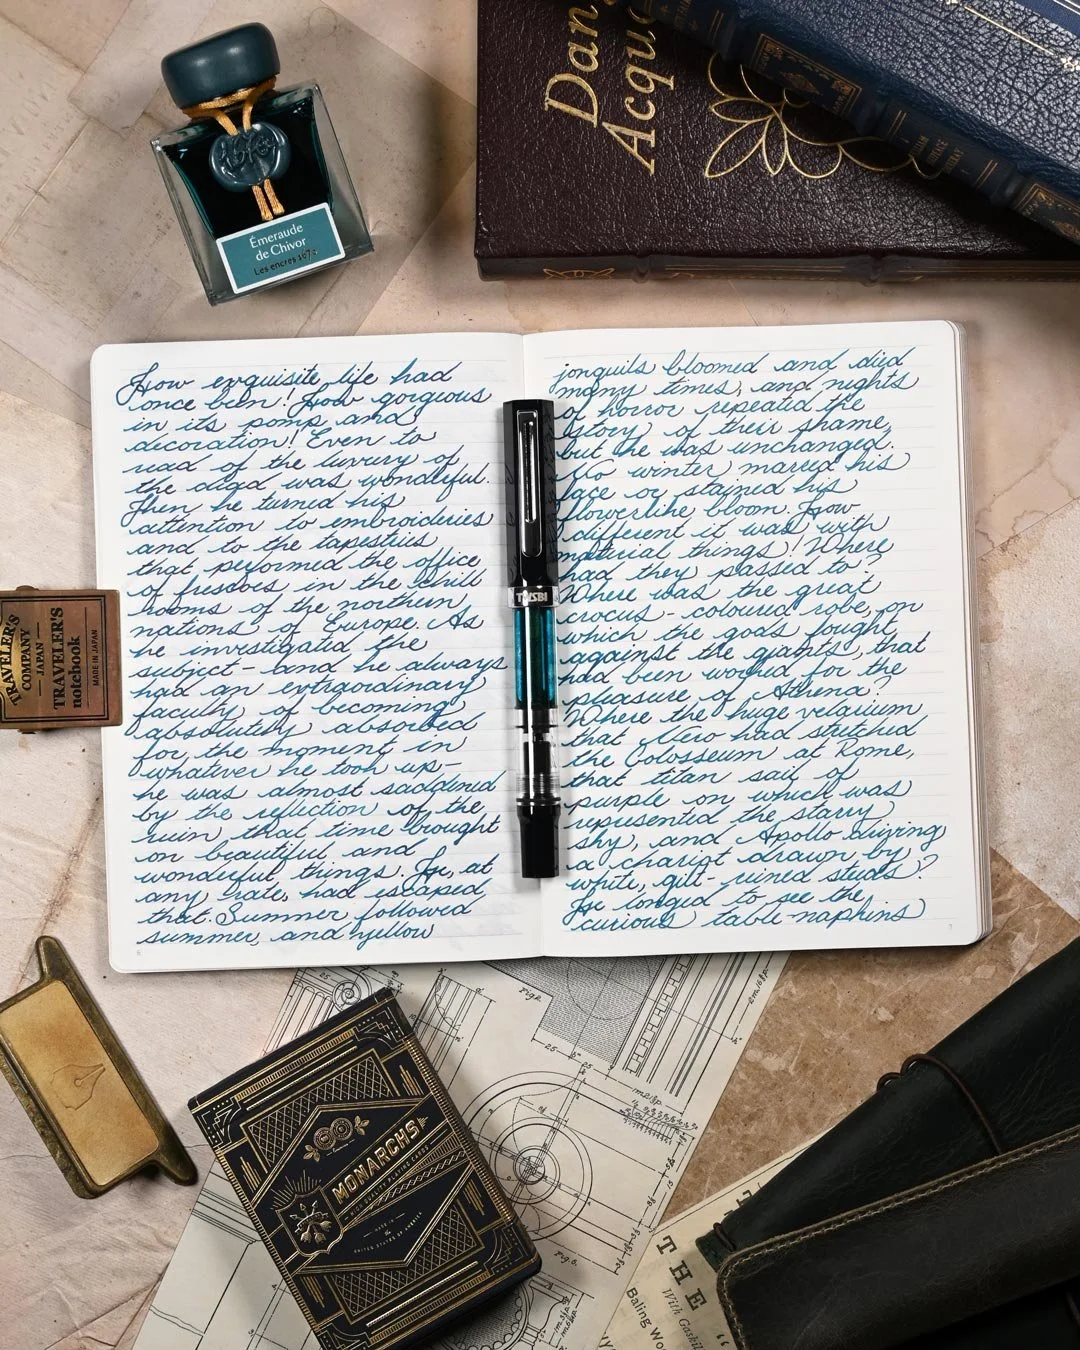 Émeraude
de Chivor
Les encres 1670
1670
Dan
Acqu
How exquisite life had
once been! How gorgeous
in its pomp and
decoration! Even to
read of the luxury of
the dead was wonderful.
Then he turned his
attention to embroideries
and to the tapestries
that performed the office
of frescoes in the chill
rooms of the northern
nations of Europe. As
he investigated the
subject- and he always
had an extraordinary
faculty of becoming
absolutely absorbed
for the moment in
whatever he took up-
he was almost saddened
by the reflection of the
ruin that time brought
on beautiful and
wonderful things. He, at
any rate, had escaped
that. Summer followed
summer, and yellow
jonquils bloomed and died
many times, and nights
of horror repeated the
story of their shame,
but he was unchanged.
No winter marred his
face or stained his
flowerlike bloom. How
different it was with
material things! Where
had they passed to?
Where was the great
crocus-coloured robe, on
which the gods fought
against the giants, that
had been worked for the
pleasure of Athena?
Where the huge velarium
that Nero had stretched
the Colosseum at Rome,
that titan sail of
purple on which was
represented the starry
sky, and Apollo driving
a chariot drawn by
white, gilt-reined steeds?
He longed to see the
curious table-napkins
TWSBI
TRAVELER'S
COMPANY
JAPAN
TRAVELER'S
notebook
MADE IN JAPAN
MONARCHS
HIGH QUALITY PLAYING CARDS
MADE IN
the
UNITED STATES OF AMERICA
Fig. 2.
Fig. 6.
THE
With
Baling